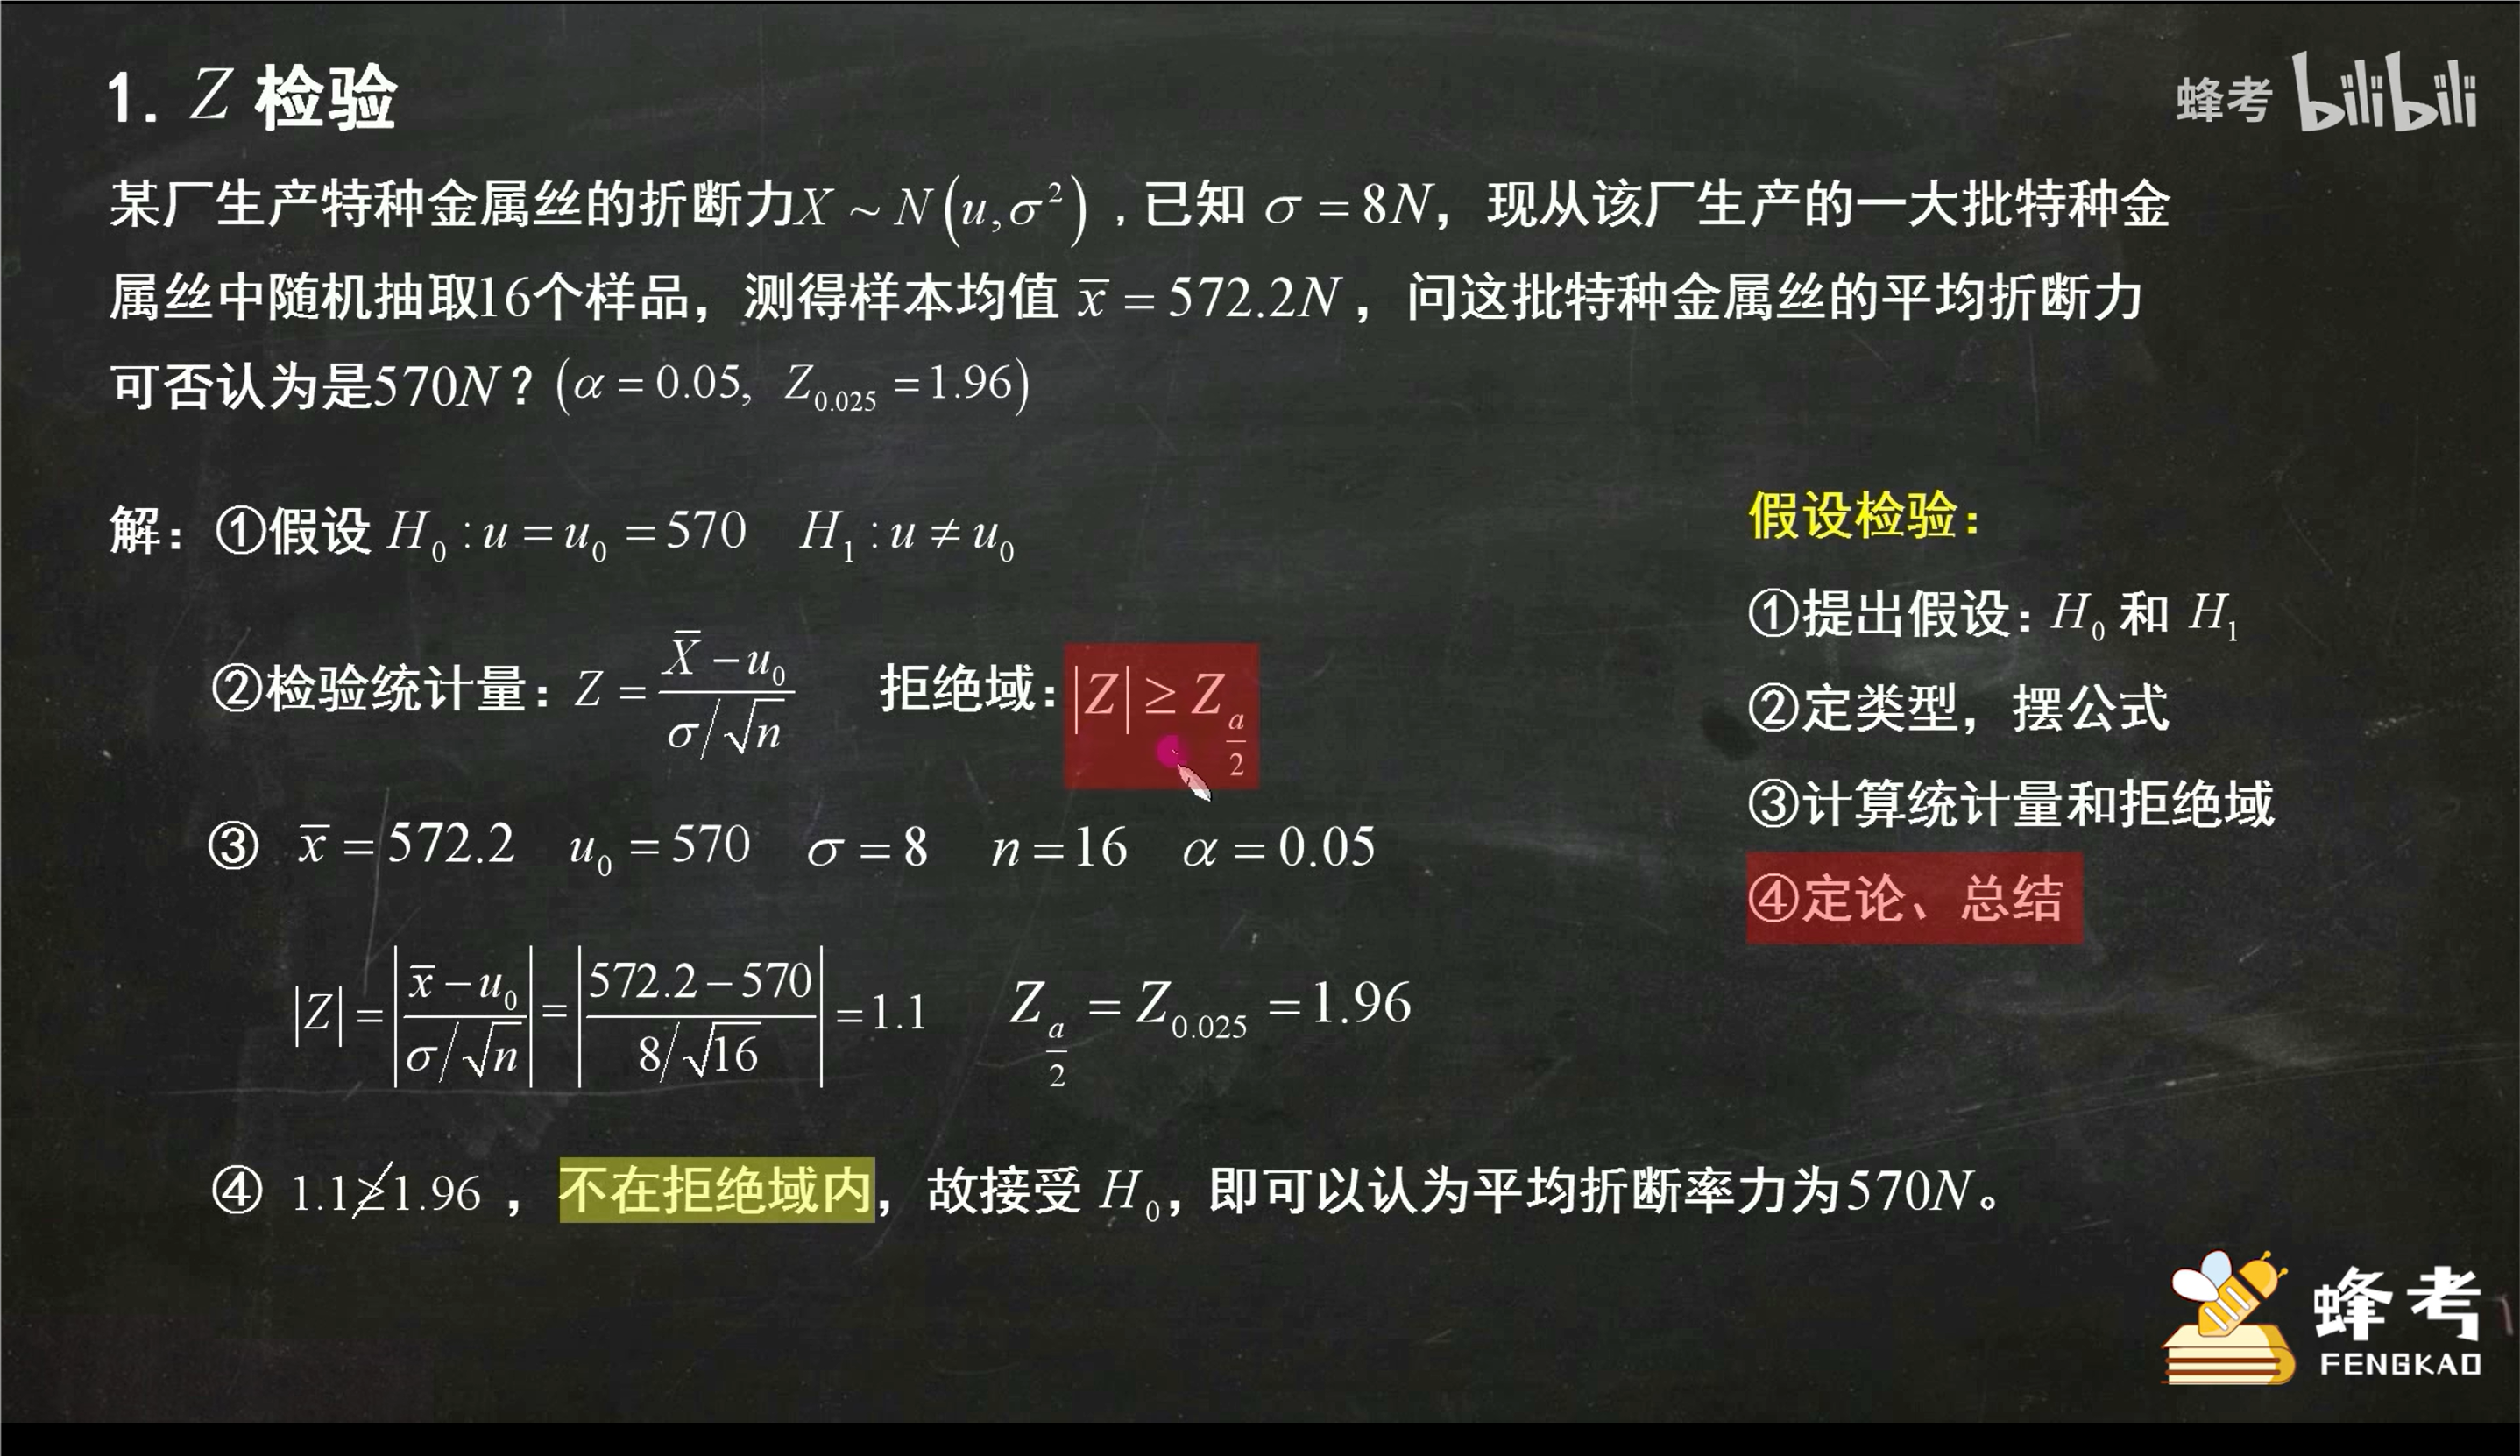 1. Z 检验
蜂考 bilibili
某厂生产特种金属丝的折断力X ~ N(u,σ²) , 已知 σ = 8N，现从该厂生产的一大批特种金
属丝中随机抽取16个样品，测得样本均值 x̅ = 572.2N ，问这批特种金属丝的平均折断力
可否认为是570N？(α = 0.05, Z_0.025 = 1.96)
解：①假设 H₀ : u = u₀ = 570 H₁ : u ≠ u₀
②检验统计量：Z = (X̅ − u₀)/(σ/√n) 拒绝域：|Z| ≥ Z_(a/2)
③ x̅ = 572.2 u₀ = 570 σ = 8 n = 16 α = 0.05
|Z| = |(x̅ − u₀)/(σ/√n)| = |(572.2 − 570)/(8/√16)| = 1.1 Z_(a/2) = Z_0.025 = 1.96
④ 1.1≱1.96 ，不在拒绝域内，故接受 H₀，即可以认为平均折断率力为570N。
假设检验：
①提出假设：H₀ 和 H₁
②定类型，摆公式
③计算统计量和拒绝域
④定论、总结
蜂考
FENGKAO